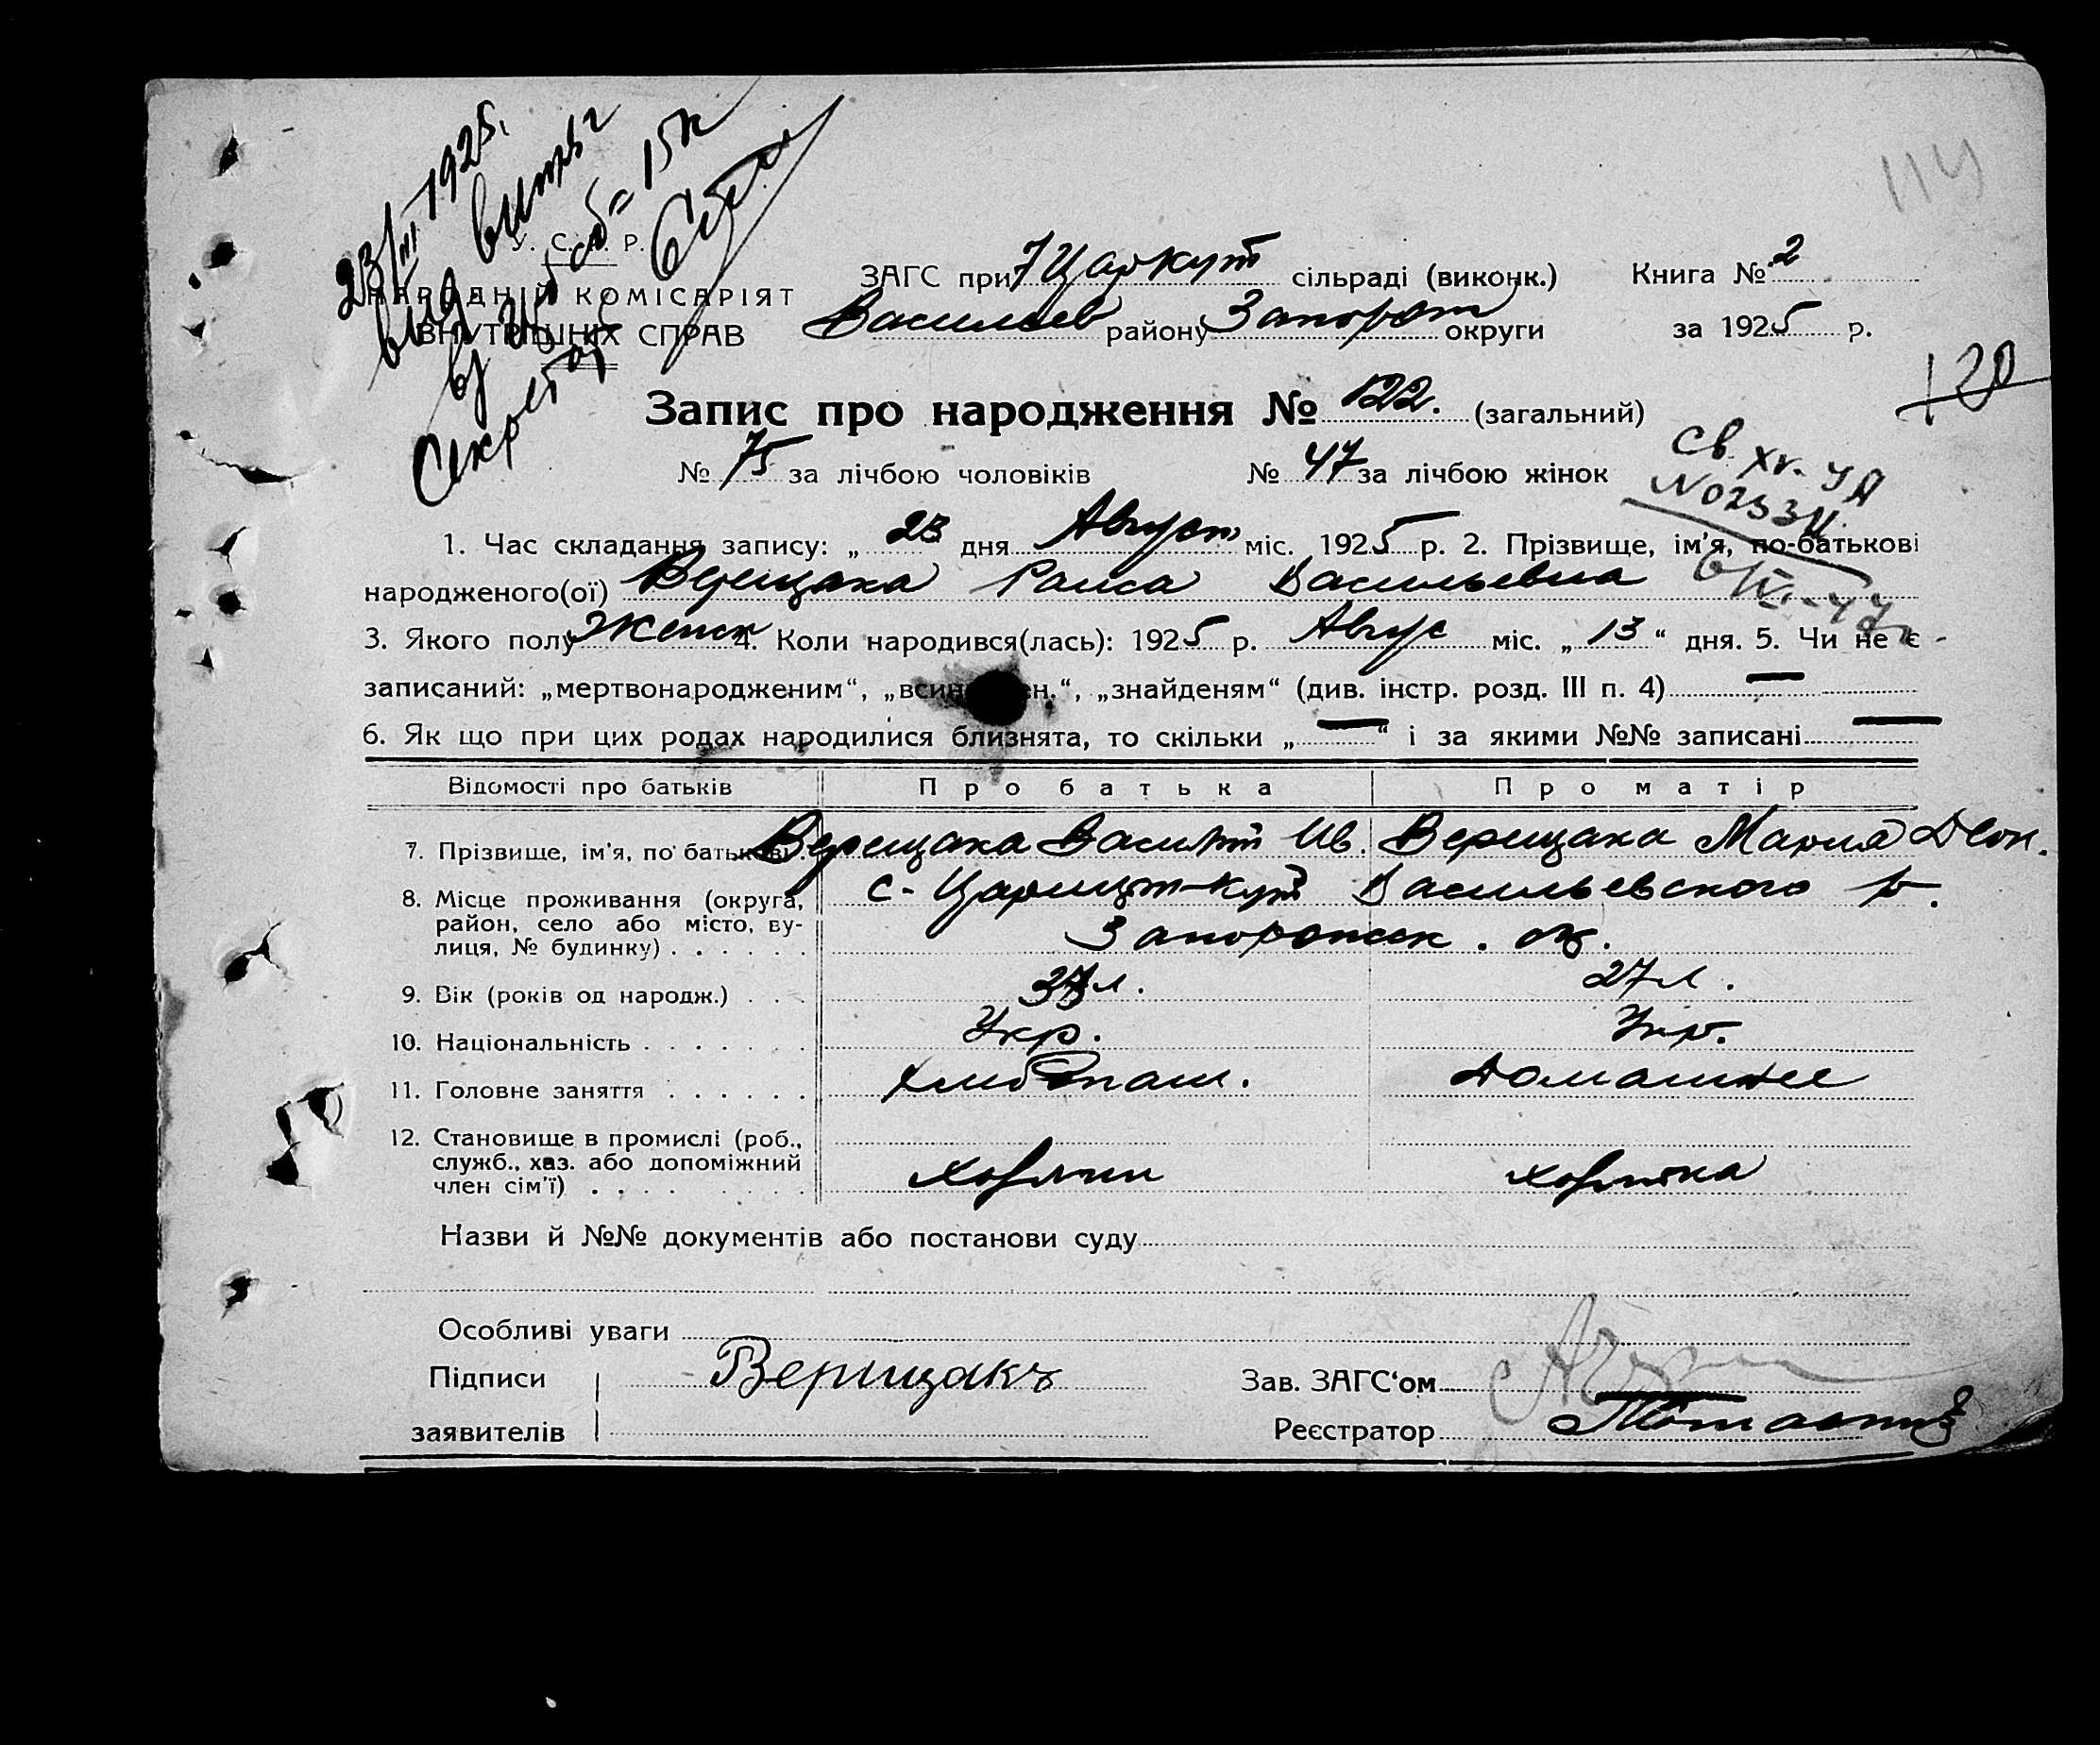 23/VIII 1925.
15 к
114
У. С. Р. Р.
НАРОДНІЙ КОМІСАРІЯТ
ВНУТРІШНІХ СПРАВ
ЗАГС при Царкут сільраді (виконк.) Книга № 2
Васильев району Запорож округи за 1925 р.
120
Запис про народження № 122. (загальний)
№ 75 за лічбою чоловіків № 47 за лічбою жінок
Св. ХГ-УА
№ 02334
1. Час складання запису: „ 23 дня Август міс. 1925 р. 2. Прізвище, ім’я, по-батькові
народженого(ої) Верещака Раиса Васильевна
3. Якого полу Женск 4. Коли народився(лась): 1925 р. Авгус міс. „ 13 “ дня. 5. Чи не є
записаний: „мертвонародженим“, „знайденям“ (див. інстр. розд. III п. 4) —
6. Як що при цих родах народилися близнята, то скільки „ — “ і за якими №№ записані —
Відомості про батьків Про батька Про матір
7. Прізвище, ім’я, по батькові. Верещака Василий Ив. Верещака Мария
8. Місце проживання (округа, с- Царицын-кут Васильевского р.
район, село або місто, ву-
лиця, № будинку) . . . . . . Запорожск. ок.
9. Вік (років од народж.) . . . л. 27 л.
10. Національність . . . . . . . Укр. Укр.
11. Головне заняття . . . . . . Хлибопаш. Домашнее
12. Становище в промислі (роб.,
служб., хаз. або допоміжний
член сім’ї) . . . . Хозяин хозяйка
Назви й №№ документів або постанови суду
Особливі уваги
Підписи Верищакъ Зав. ЗАГС‘ом
заявителів Реєстратор